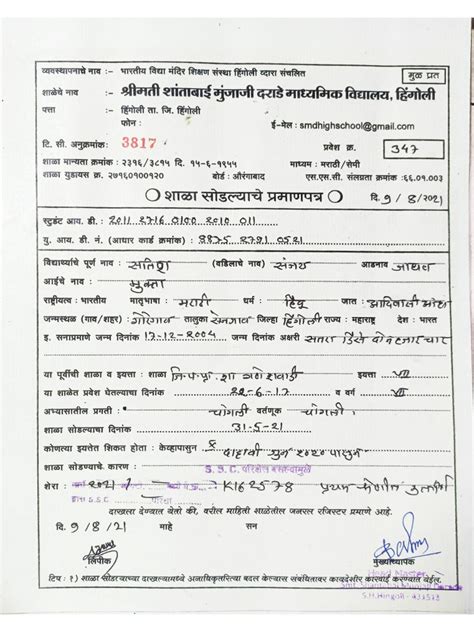 व्यवस्थापनाचे नाव :- भारतीय विद्या मंदिर शिक्षण संस्था हिंगोली व्दारा संचलित
मुळ प्रत
शाळेचे नाव :- श्रीमती शांताबाई मुंजाजी दराडे माध्यमिक विद्यालय, हिंगोली
पत्ता : हिंगोली ता. जि. हिंगोली
फोन : ई-मेल : smdhighschool@gmail.com
टि. सी. अनुक्रमांक: 3817 प्रवेश क्र. 347
शाळा मान्यता क्रमांक : २३१६/३८१५ दि. १५-६-१९५५ माध्यम : मराठी/सेमी
शाळा युडायस क्र. २७१६०१००१२० बोर्ड : औरंगाबाद एस.एस.सी. संलग्रता क्रमांक :६६.०१.००३
शाळा सोडल्याचे प्रमाणपत्र दि. 9/8/2021
स्टुडंट आय. डी. : 2011 2716 0100 2010 011
यु. आय. डी. नं. (आधार कार्ड क्रमांक) : 8875 2791 0521
विद्यार्थ्याचे पूर्ण नाव : सतिश (वडिलाचे नाव) संजय आडनाव जाधव
आईचे नाव : मुक्ता
राष्ट्रीयत्व : भारतीय मातृभाषा : मराठी धर्म : हिंदू जात : आदिवासी
जन्मस्थळ (गाव/शहर) : गोरेगाव तालुका सेनगाव जिल्हा हिंगोली राज्य : महाराष्ट्र देश : भारत
इ. सनाप्रमाणे जन्म दिनांक 17-12-2004 जन्म दिनांक अक्षरी सतरा डिसें दोन हजार चार
या पूर्वीची शाळा व इयत्ता : शाळा जि.प.प्रा. शा इयत्ता VII
शाळेत प्रवेश घेतल्याचा दिनांक 22-6-17 व वर्ग VII
अभ्यासातील प्रगती : चांगली वर्तणूक चांगली
शाळा सोडल्याचा दिनांक : 31-5-21
कोणत्या इयत्तेत शिकत होता : केव्हापासून दहावी जुन २०२० पासुन
शाळा सोडण्याचे कारण : S.S.C. परिक्षेस बसल्यामुळे
शेरा : 2021 K162578 प्रथम श्रेणीत उत्तीर्ण
S.S.C
दाखला देण्यात येतो की, वरील माहिती शाळेतील जनरल रजिस्टर प्रमाणे आहे.
दि. 9/8/21 माहे सन
लिपीक मुख्याध्यापक
Head Master
टिप : १) शाळा सोडल्याच्या दाखल्यामध्ये अनाधिकृतरित्या बदल केल्यास संबंधितावर कायदेशीर कारवाई करण्यात येईल.